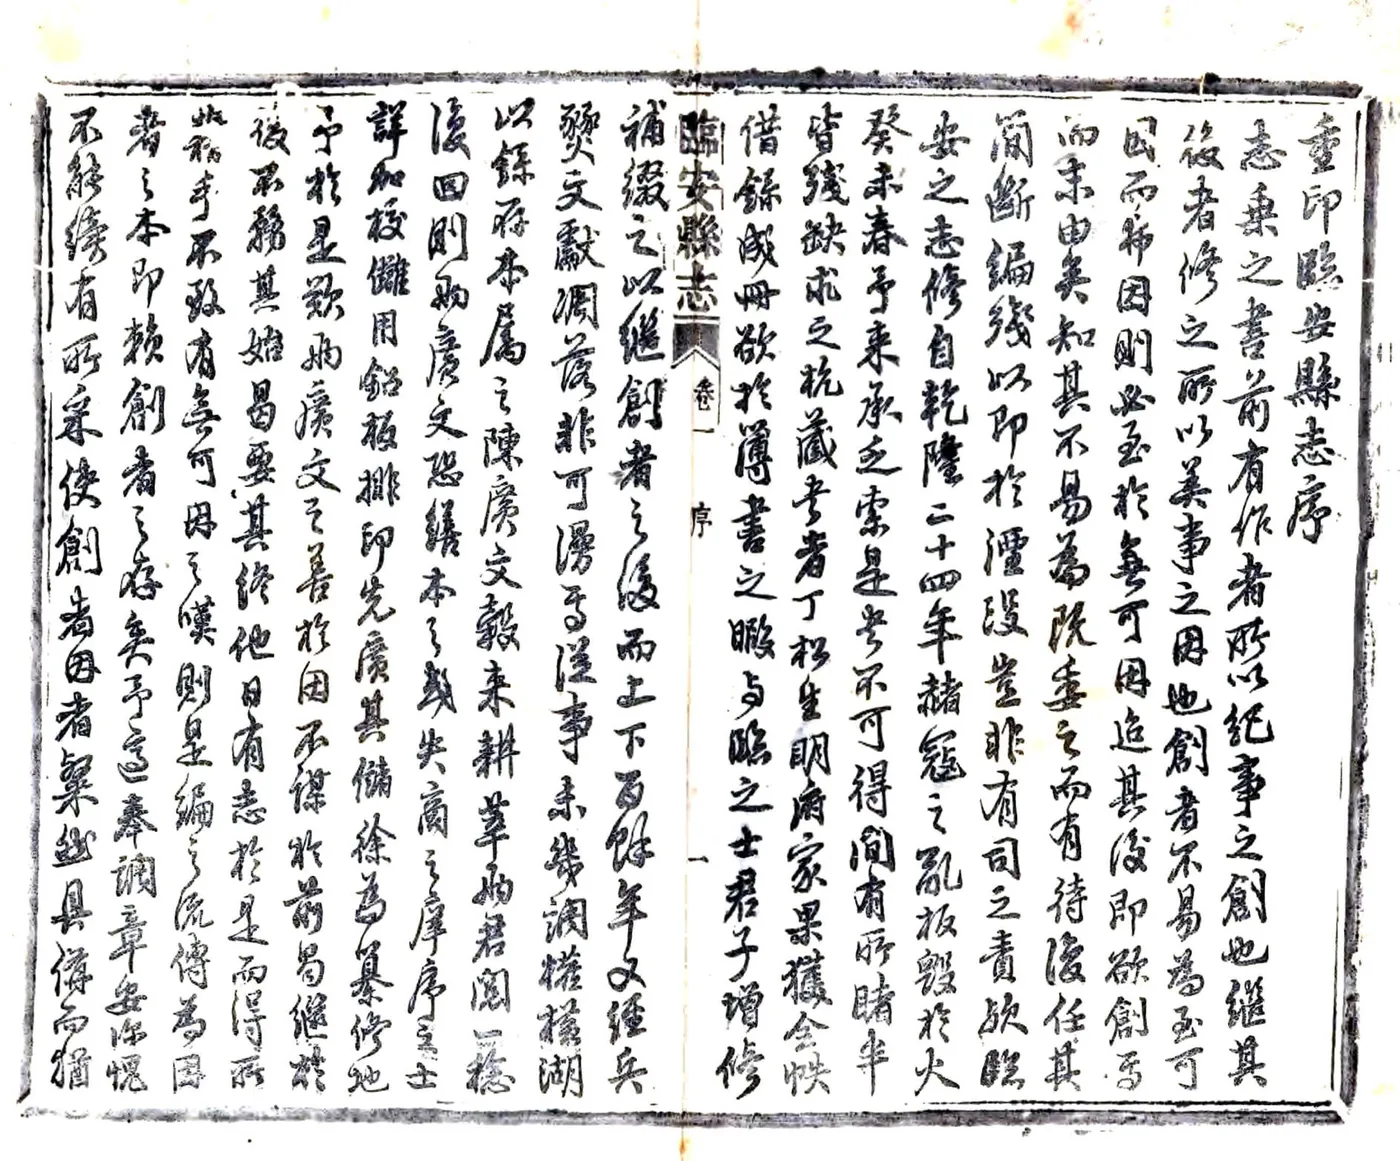 重印臨安縣志序
志乘之書前有作者所以紀事之創也繼其
後者修之所以美事之因也創者不易為至可
因而弗因則必至於無可因迨其後即欲創焉
而末由矣知其不易為既委之而有待復任其
簡斷編殘以即於湮沒豈非有司之責歟臨
安之志修自乾隆二十四年赭寇之亂板毀於火
癸未春予來承乏索是書不可得間有所睹半
皆殘缺求之杭藏書者丁松生明府家果獲全帙
借錄成冊欲於簿書之暇與臨之士君子增修
臨安縣志 卷一 序 一
補綴之以繼創者之後而上下百餘年又經兵
燹文獻凋落非可漫焉從事未幾調權橫湖
以錄存本屬之陳廣文穀來耕莘兩君閱一稔
復回則兩廣文恐繕本之或失商之庠序之士
詳加校讎用鉛板排印先廣其傳徐為纂修地
予於是歎兩廣文之善於因不謀於前曷繼於
後不務其始曷要其終他日有志於是而得所
藉手不致有無可因之嘆則是編之流傳為因
者之本即賴創者之存矣予適奉調章安深愧
不能續有所采使創者因者粲然具備而猶